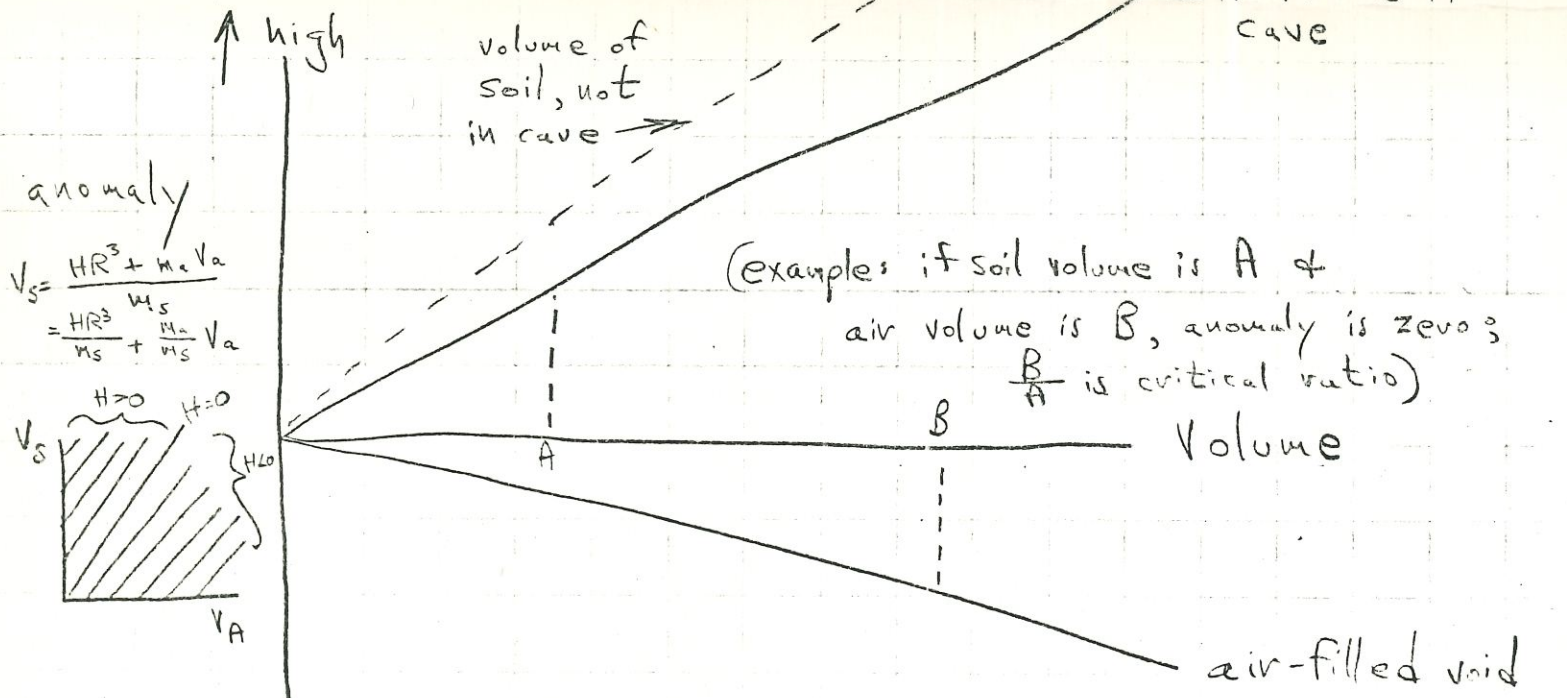 high
volume of
soil, not
in cave
cave
anomaly
V_s = (HR³ + m_a V_a) / m_s
= HR³/m_s + m_a/m_s V_a
(example: if soil volume is A &
air volume is B, anomaly is zero;
B/A is critical ratio)
H>0 H=0
V_s
H<0
V_A
A
B
Volume
air-filled void